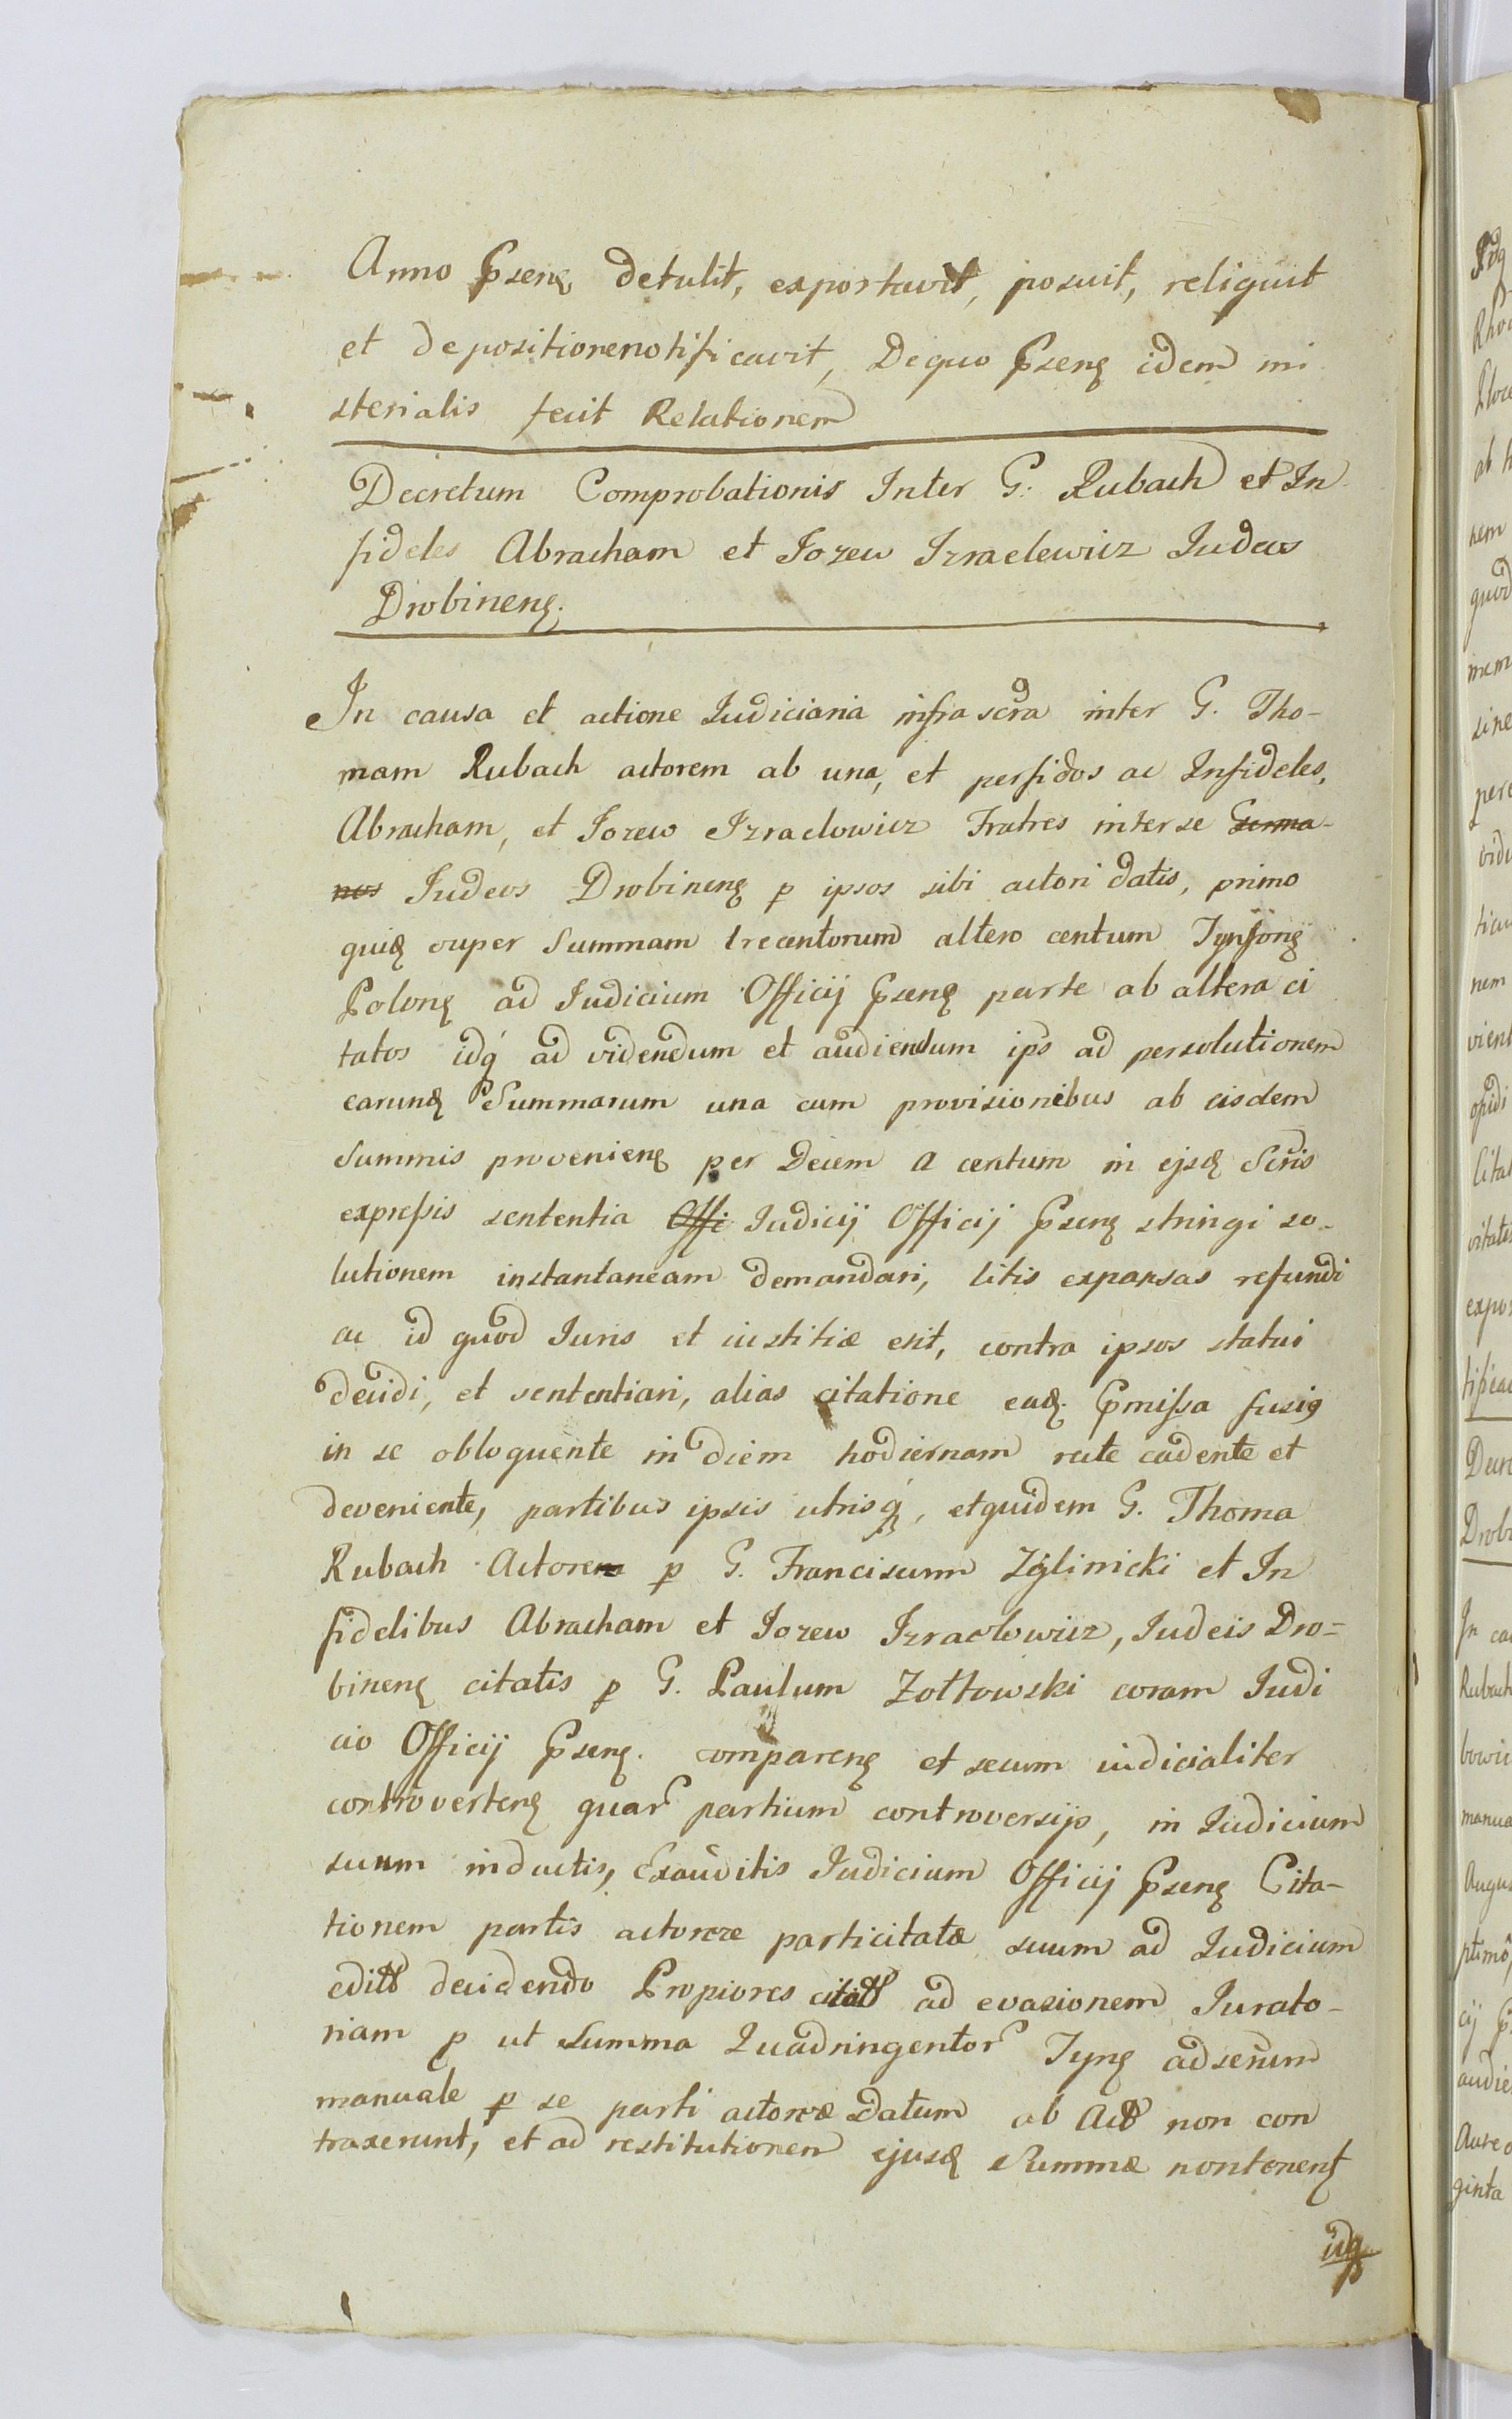 Anno Pseñ detulit, exportavit, posuit, reliquit
et depositionenotificavit, De quo Pseñ idem mi
sterialis fecit Relationem
Decretum Comprobationis Inter G. Rubach et In
fideles Abracham et Jozew Izraelewicz Judeos
Drobineñ.
In causa et actione Judiciaria infra scra inter G. Tho-
mam Rubach actorem ab una, et perfidos ac Infideles,
Abracham, et Jozew Izraelowicz Fratres inter se Germa-
nos Judeos Drobineñ p ipsos sibi actori datis, primo
quidē super Summam trecentorum altero centum Tynfoñ
Poloñ ad Judicium Officij Pseñ parte ab altera ci
tatos idq́ ad videndum et audiendum ips ad persolutionem
earundē Summarum una cum provisionibus ab eisdem
Summis provenieñ per Decem a centum in ejsdē Scris
expressis sententia Offi Judicij Officij Pseñ stringi so-
lutionem instantaneam demandari, litis expansas refundi
ac id quod Juris et iustitiæ erit, contra ipsos statui
decidi, et sententiari, alias citatione eadē. Pmissa fusig
in se obloquente in diem hodiernam recte cadente et
deveniente, partibus ipsis utrisq́, et quidem G. Thoma
Rubach Actorem p G. Franciscum Zglinicki et In
fidelibus Abracham et Jozew Izraelowicz, Judeis Dro=
bineñ citatis p G. Paulum Zołtowski coram Judi
cio Officij Pseñ. compareñ et secum iudicialiter
controverteñ quar partium controversijs, in Judicium
suum inductis, Exauditis Judicium Officij Pseñ Cita-
tionem partis actoreæ particitatæ suum ad Judicium
edit decidendo Propiores citat ad evasionem Jurato-
riam p ut Summa Quadringentor Tyñ ad scrum
manuale p se parti actoreæ Datum ab Act non con
traxerunt, et ad restitutionem ejusdē Summæ non teneñt
idq